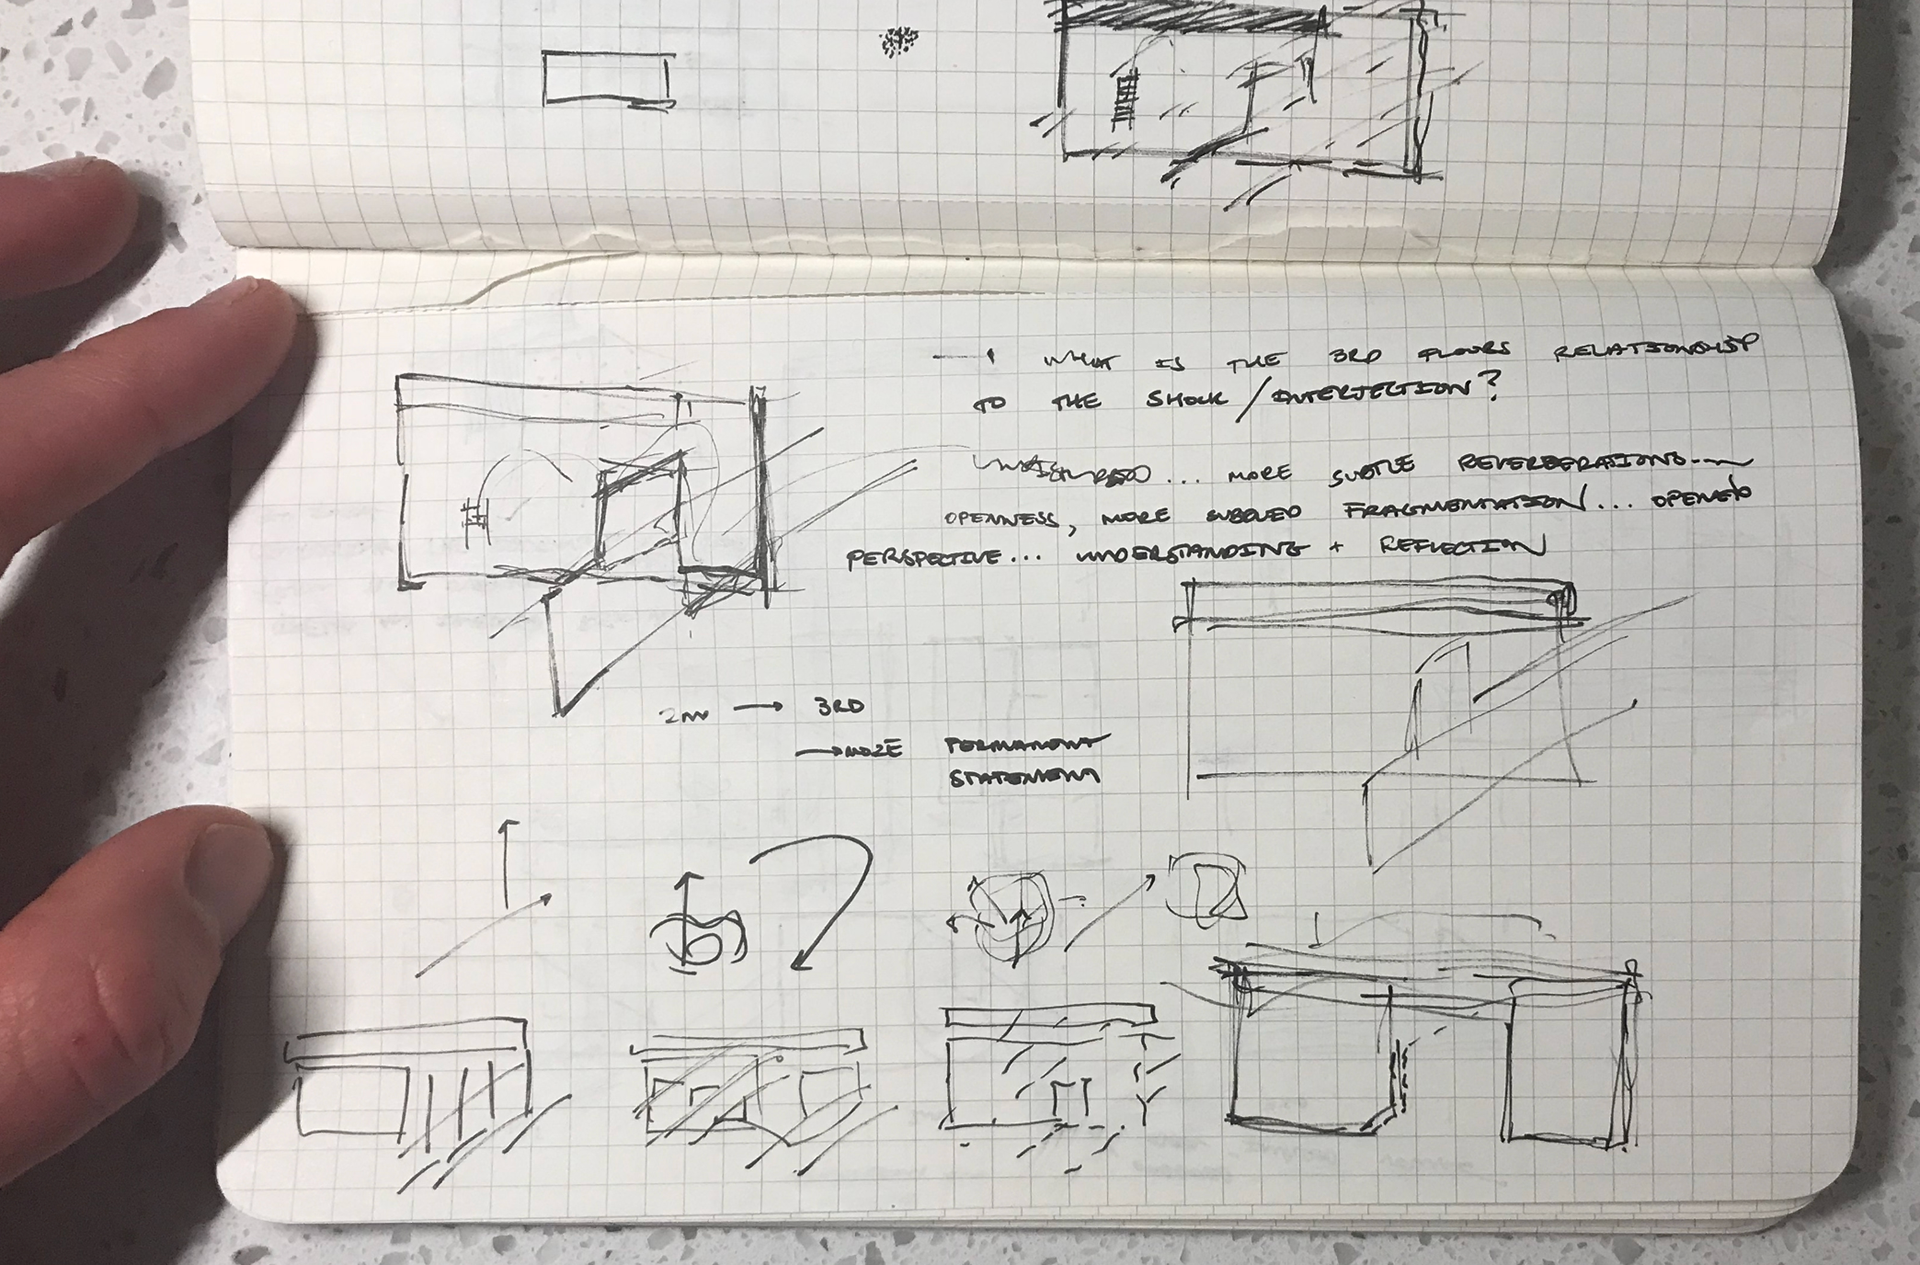 → WHAT IS THE 3RD FLOORS RELATIONSHIP
TO THE SHOCK / INTERJECTION?
... MORE SUBTLE REVERBERATIONS
OPENNESS, MORE SUBDUED FRAGMENTATION... OPENED
PERSPECTIVE... UNDERSTANDING + REFLECTION
2ND → 3RD
→ MORE PERMANENT
STATEMENT